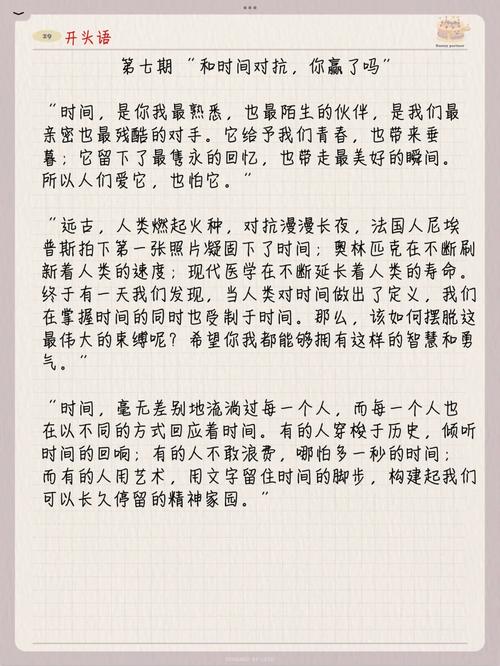 29 开头语
第七期 “和时间对抗，你赢了吗”
“时间，是你我最熟悉，也最陌生的伙伴，是我们最
亲密也最残酷的对手。它给予我们青春，也带来垂
暮；它留下了最隽永的回忆，也带走最美好的瞬间。
所以人们爱它，也怕它。”
“远古，人类燃起火种，对抗漫漫长夜，法国人尼埃
普斯拍下第一张照片凝固下了时间；奥林匹克在不断刷
新着人类的速度；现代医学在不断延长着人类的寿命。
终于有一天我们发现，当人类对时间做出了定义，我们
在掌握时间的同时也受制于时间。那么，该如何摆脱这
最伟大的束缚呢？希望你我都能够拥有这样的智慧和勇
气。”
“时间，毫无差别地流淌过每一个人，而每一个人也
在以不同的方式回应着时间。有的人穿梭于历史，倾听
时间的回响；有的人不敢浪费，哪怕多一秒的时间；
而有的人用艺术，用文字留住时间的脚步，构建起我们
可以长久停留的精神家园。”